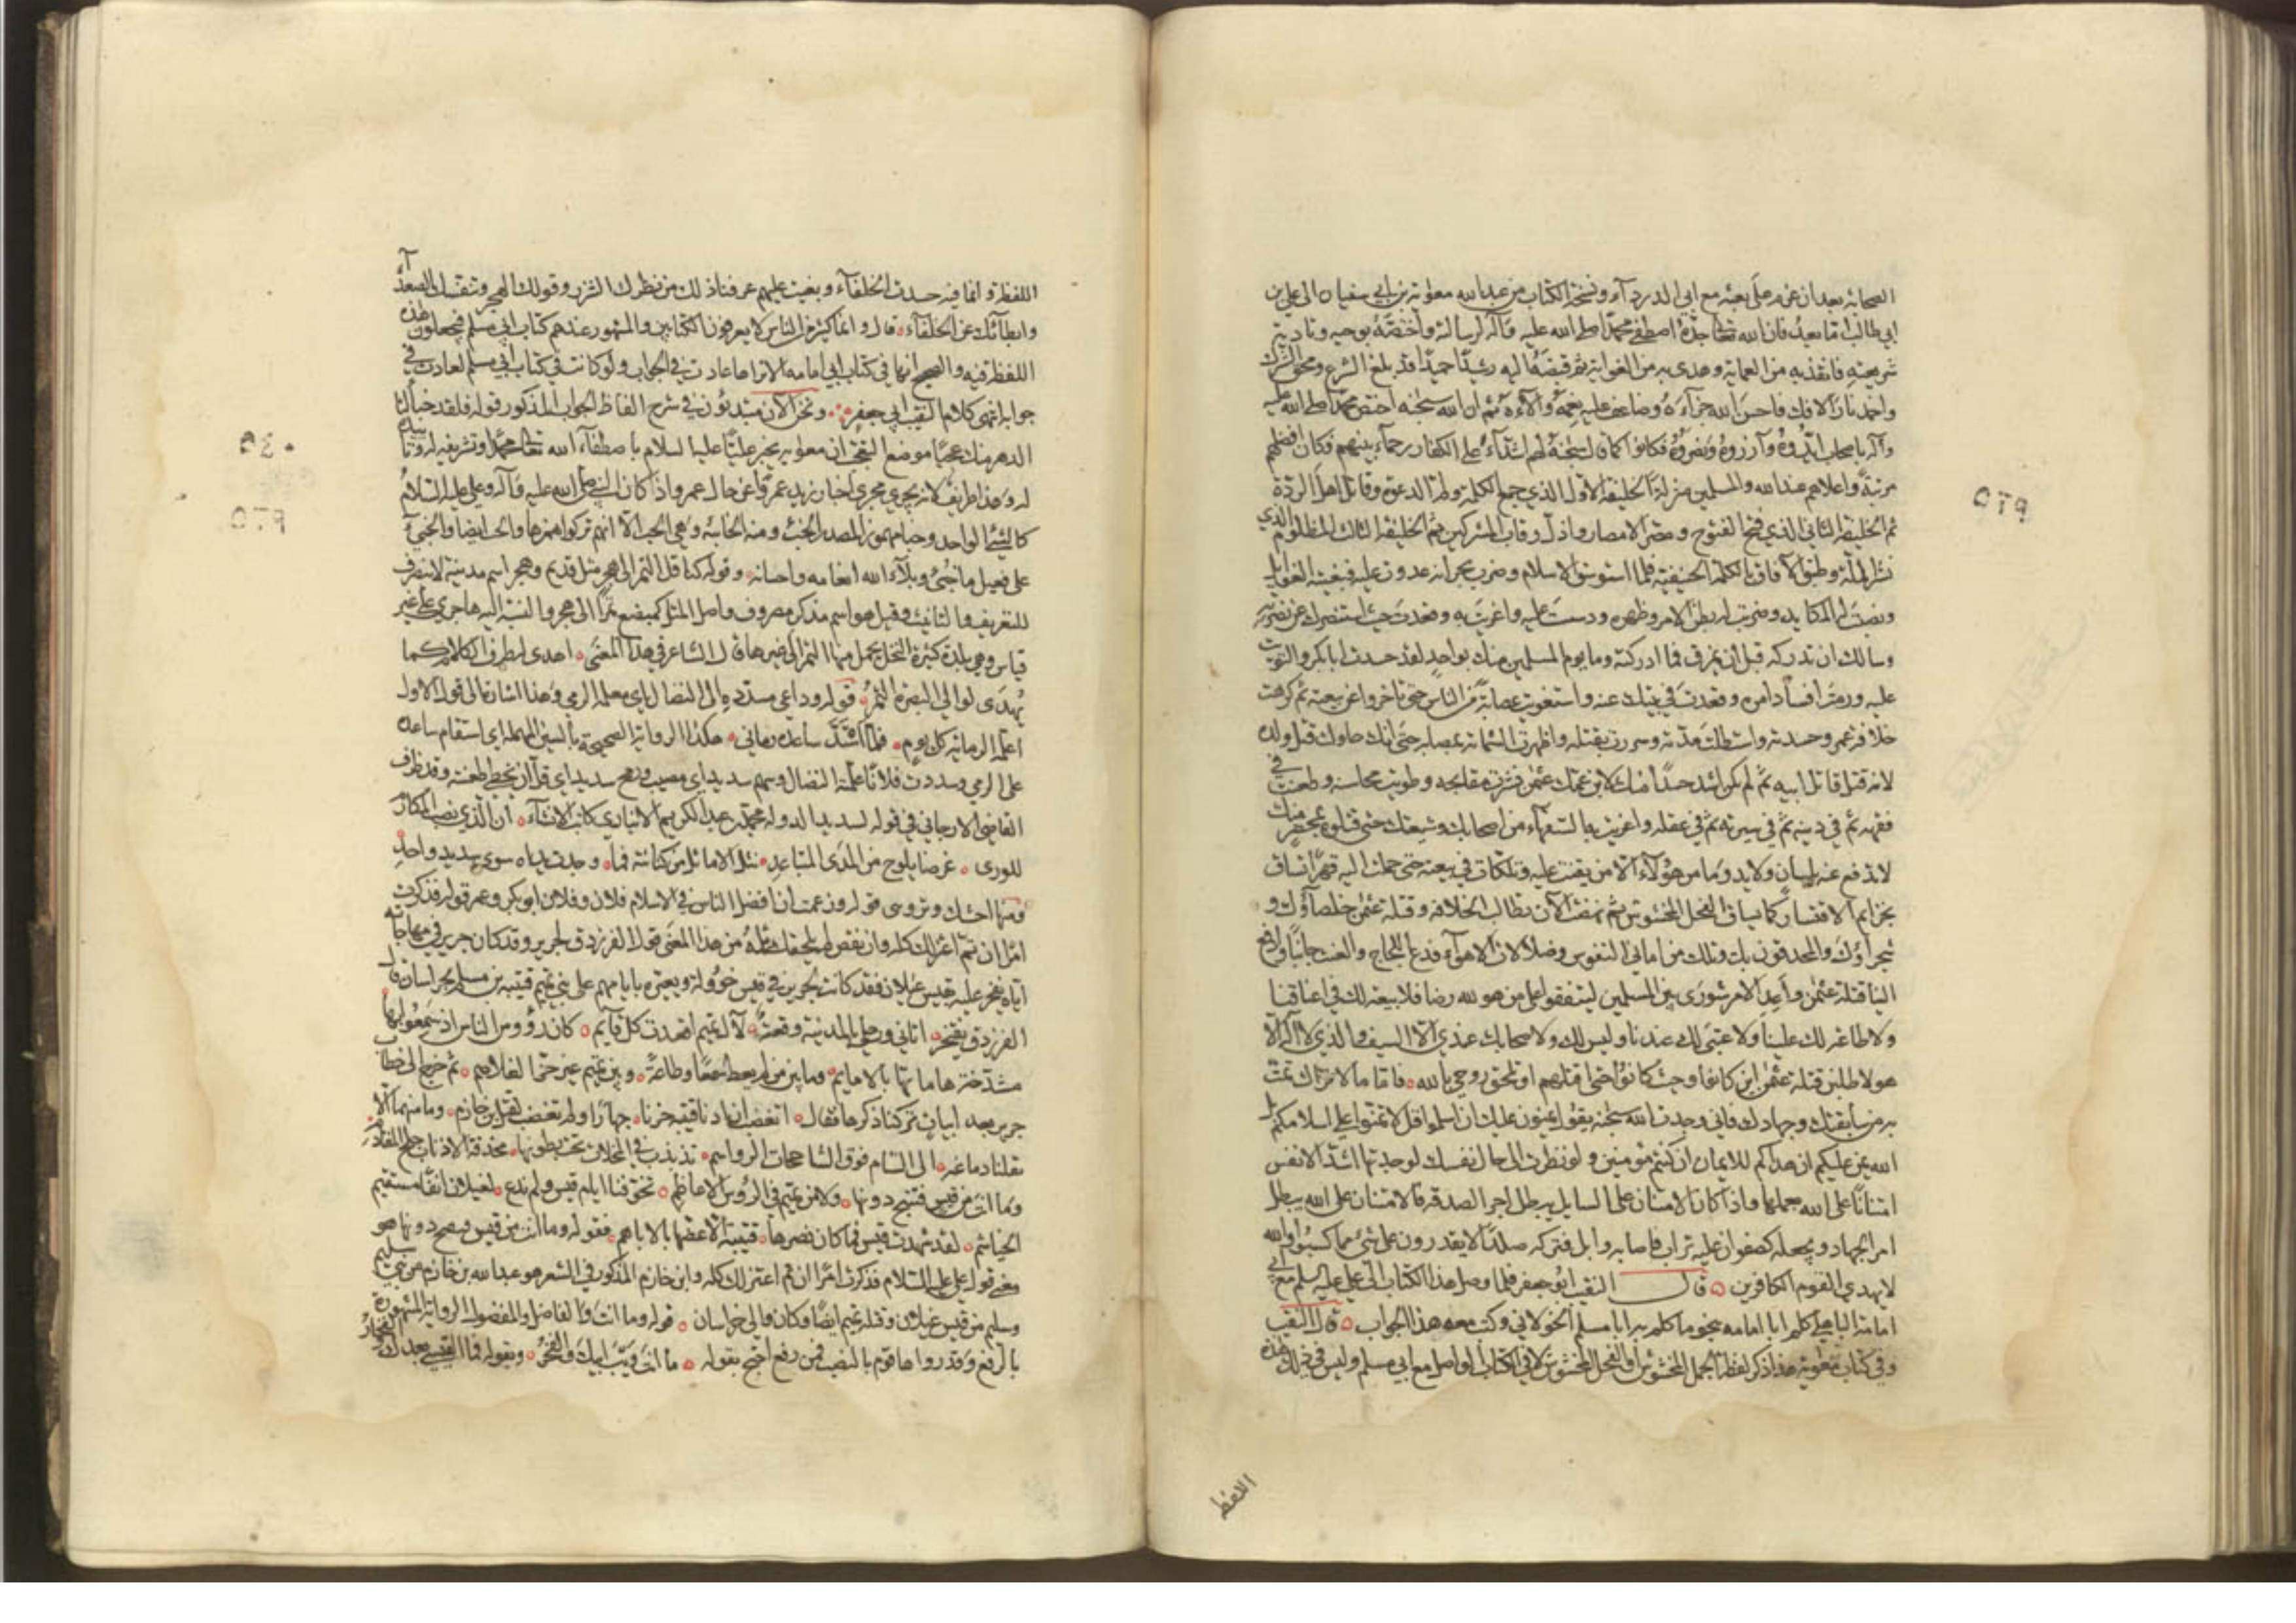 الصحابة بعد ان عزم على بعثه مع ابي الدرداء ونسخة الكتاب من عبد الله معوية بن ابي سفيان الى علي بن
ابي طالب اما بعد فان الله تعالى جده اصطفى محمدا صلى الله عليه وآله لرسالته واختصه بوحيه وتأدية
شريعته فانقذ به من العماية وهدى به من الغواية ثم قبضه اليه رشيدا حميدا قد بلغ الشرع ومحق الشرك
واخمد نار الافك فاحسن الله جزآءه وضاعف عليه نعمه وآلآءه ثم ان الله سبحنه اختص محمدا صلى الله عليه
وآله باصحاب ايدوه وآزروه ونصروه فكانوا كما قال سبحنه لهم اشدآء على الكفار رحمآء بينهم فكان افضلهم
مرتبة واعلاهم عند الله والمسلمين منزلة الخليفة الاول الذي جمع الكلمة ولم الدعوة وقاتل اهل الردة
ثم الخليفة الثاني الذي فتح الفتوح ومصر الامصار واذل رقاب المشركين ثم الخليفة الثالث المظلوم الذي
نشر الملة وطبق الآفاق بالكلمة الحنيفية فلما استوسق الاسلام وضرب بجرانه عدوت عليه فبغيته الغوايل
ونصبت له المكايد وضربت له بطن الامر وظهره ودسست عليه واغريت به وقعدت حيث استنصرك عن نصرته
وسالك ان تدركه قبل ان يمزق فما ادركته وما يوم المسلمين منك بواحد لقد حسدت ابا بكر والتويت
عليه ورمت افساد امره وقعدت في بيتك عنه واستغويت عصابة من الناس حتى تاخروا عن بيعته ثم كرهت
خلافة عمر وحسدته واستطلت مدته وسررت بقتله واظهرت الشماتة بمصابه حتى انك حاولت قتل ولده
لانه قتل قاتل ابيه ثم لم تكن اشد حسدا منك لابن عمك عثمن نشرت مقابحه وطويت محاسنه وطعنت في
فقهه ثم في دينه ثم في سيرته ثم في عقله واغريت به السفهآء من اصحابك وشيعتك حتى قتلوه بمحضر منك
لا تدفع عنه بلسان ولا يد وما من هؤلآء الا من بغيت عليه وتلكأت في بيعته حتى حملت اليه قهرا تساق
بخزايم الاقتسار كما يساق الفحل المخشوش ثم نهضت الآن تطلب الخلافة وقتلة عثمن خلصآؤك و
شجرآؤك والمحدقون بك وتلك من اماني النفوس وضلالات الاهوآء فدع اللجاج والعبث جانبا وادفع
الينا قتلة عثمن وأعد الامر شورى بين المسلمين ليتفقوا على من هو لله رضا فلا بيعة لك في اعناقنا
ولا طاعة لك علينا ولا عتبى لك عندنا وليس لك ولا صحابك عندي الا السيف والذي لا آله الا
هو لاطلبن قتلة عثمن اين كانوا وحيث كانوا حتى اقتلهم او تلحق روحي بالله فاما ما لا تزال تمن
به من سابقتك وجهادك فاني وجدت الله سبحنه يقول يمنون عليك ان اسلموا قل لا تمنوا علي اسلامكم بل
الله يمن عليكم ان هداكم للايمان ان كنتم مومنين ولو نظرت الى حال نفسك لوجدتها اشد الانفس
امتنانا على الله بعملها واذا كان الامتنان على السايل يبطل اجر الصدقة فالامتنان على الله يبطل
اجر الجهاد ويجعله كصفوان عليه تراب فاصابه وابل فتركه صلدا لا يقدرون على شئ مما كسبوا والله
لا يهدي القوم الكافرين قال النقيب ابو جعفر فلما وصل هذا الكتاب الى علي عليه السلم مع ابي
امامة الباهلي كلم ابا امامه بنحو ما كلم به ابا مسلم الخولاني وكتب معه هذا الجواب قال النقيب
وفي كتاب معوية هذا ذكر لفظة الجمل المخشوش او الفحل المخشوش لا في الكتاب الواصل مع ابي مسلم وليس في ذلك هذه
اللفظ
٥٣٩
اللفظة وانما فيه حسدت الخلفآء وبغيت عليهم عرفنا ذلك من نظرك الشزر وقولك الهجر وتنفسك الصعدآء
وابطآئك عن الخلفآء قال وانما كثير من الناس لا يعرفون الكتابين والمشهور عندهم كتاب ابي مسلم فيجعلون هذه
اللفظة فيه والصحيح انها في كتاب ابي امامه الا تراها عادت في الجواب ولو كانت في كتاب ابي مسلم لعادت في
جوابه انتهى كلام النقيب ابي جعفر ونحن الآن مبتدئون في شرح الفاظ الجواب المذكور قوله فلقد خبأ لنا
الدهر منك عجبا موضع التعجب ان معوية يخبر عليا عليه السلام باصطفآء الله تعالى محمدا وتشريفه له وتأييده
له وهذا طريف لانه يجري مجرى اخبار زيد عمرا عن حال عمرو اذ كان النبي صلى الله عليه وآله وعلي عليه السلام
كالشئ الواحد وخبأ مهموز المصدر الخبء ومنه الخابية وهي الحب الا انهم تركوا همزها والخبء ايضا والخبئ
على فعيل ما خبئ وبلآء الله انعامه واحسانه وقوله كناقل التمر الى هجر مثل قديم وهجر اسم مدينة لا ينصرف
للتعريف والتانيث وقيل هو اسم مذكر مصروف واصل المثل كمبضع تمرا الى هجر والنسبة اليه هاجري على غير
قياس وهي بلدة كثيرة النخل يحمل منها التمر الى غيرها قال الشاعر في هذا المعنى اهدى له طرف الكلام كما
يهدى لوالي البصرة التمر قوله وداعي مسدده الى النضال اي معلمه الرمي وهذا اشارة الى قول الاول
اعلمه الرماية كل يوم فلما استد ساعده رماني هكذا الرواية الصحيحة بالسين المهملة اي استقام ساعده
على الرمي وسددت فلانا علمته النضال وسهم سديد اي مصيب ورمح سديد اي قل ان يخطي طعنته وقد ظرف
القاضي الارجاني في قوله لسديد الدولة محمد بن عبد الكريم الانباري كاتب الانشآء ان الذي نصب المكارم
للورى غرضا يلوح من المدى المتباعد نثل الاماثل من كنانته فما وجدت يداه سوى سديد واحد
ومنها اشتد وتروى قوله وزعمت ان افضل الناس في الاسلام فلان وفلان ابو بكر وعمر قوله فذكرت
امرا ان تم اعتزلك كله وان نقص لم يلحقك ثلمه من هذا المعنى قول الفرزدق لجرير وقد كان جرير في مهاجاته
اياه يفخر عليه بقيس عيلان فقد كانت لجرير في قيس خؤولة ويعيره بايامهم على بني تميم قتيبة بن مسلم بخراسان قال
الفرزدق يفتخر اتاني ورحلي بالمدينة وقعة لآل تميم اقعدت كل قآيم كان رؤوس الناس اذ سمعوا بها
مشدخة هاماتها بالامايم وما بين من لم يعط سمعا وطاعة وبين تميم غير حز الغلاصم ثم خرج الى خطاب
جرير بعد ابيات تركنا ذكرها فقال اتغضب ان اذنا قتيبة حزتا جهارا ولم تغضب لقتل ابن خازم وما منهما الا
نقلنا دماغه الى الشام فوق الشاحجات الرواسم تذبذب في المخلاة تحت بطونها محذفة الاذناب جلح المقادم
وما انت من قيس فتنبح دونها ولا من تميم في الرؤس الاعاظم تخوفنا ايام قيس ولم تدع لعيلان انفا مستقيم
الخياشم لقد شهدت قيس فما كان نصرها قتيبة الا عضها بالاباهم فقوله وما انت من قيس فتنبح دونها هو
معنى قول علي عليه السلام فذكرت امرا ان تم اعتزلك كله وابن خازم المذكور في الشعر هو عبد الله بن خازم من بني سليم
وسليم من قيس عيلان وقتله تميم ايضا وكان والي خراسان قوله وما انت والفاضل والمفضول الرواية المشهورة
بالرفع وقد رواها قوم بالنصب فمن رفع احتج بقوله ما انت ويب ابيك والفخر وبقوله فما القيسي بعدك والفخار
٥٤٠
٥٣٩